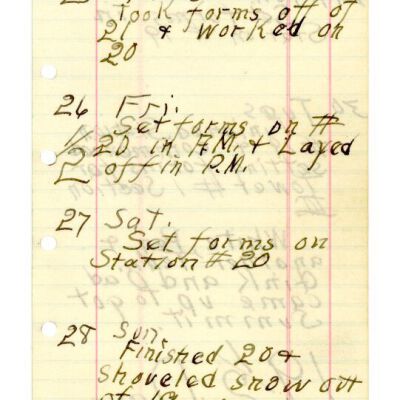 Took forms off of
21 & Worked on
20
26 Fri.
Set forms on #
1/2 20 in A.M. & Layed
off in P.M.
27 Sat.
Set forms on
Station # 20
28 Sun.
Finished 20 &
shoveled snow out
of 19